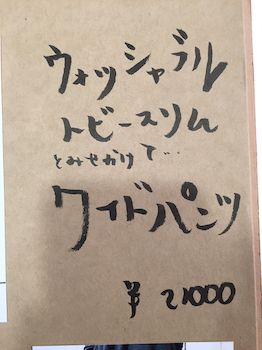 ウォッシャブル
トビースリム
とみせかけて…
ワイドパンツ
¥21000